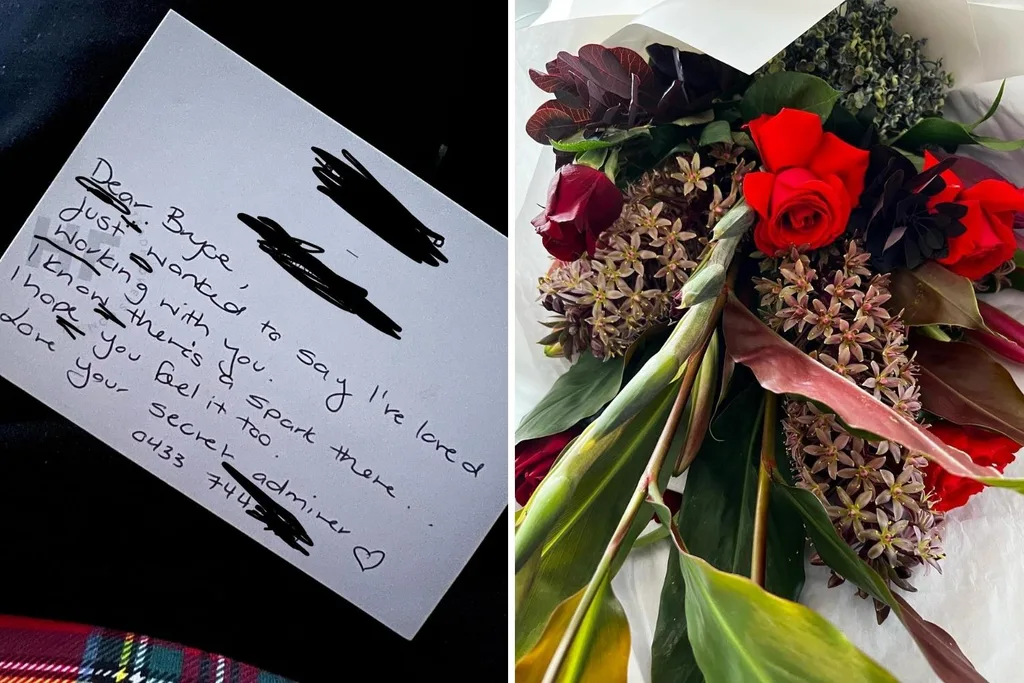 Dear Bryce,
Just wanted to say I've loved
working with you.
I know there's a spark there...
I hope you feel it too.
Love your secret admirer ♡
0433 744